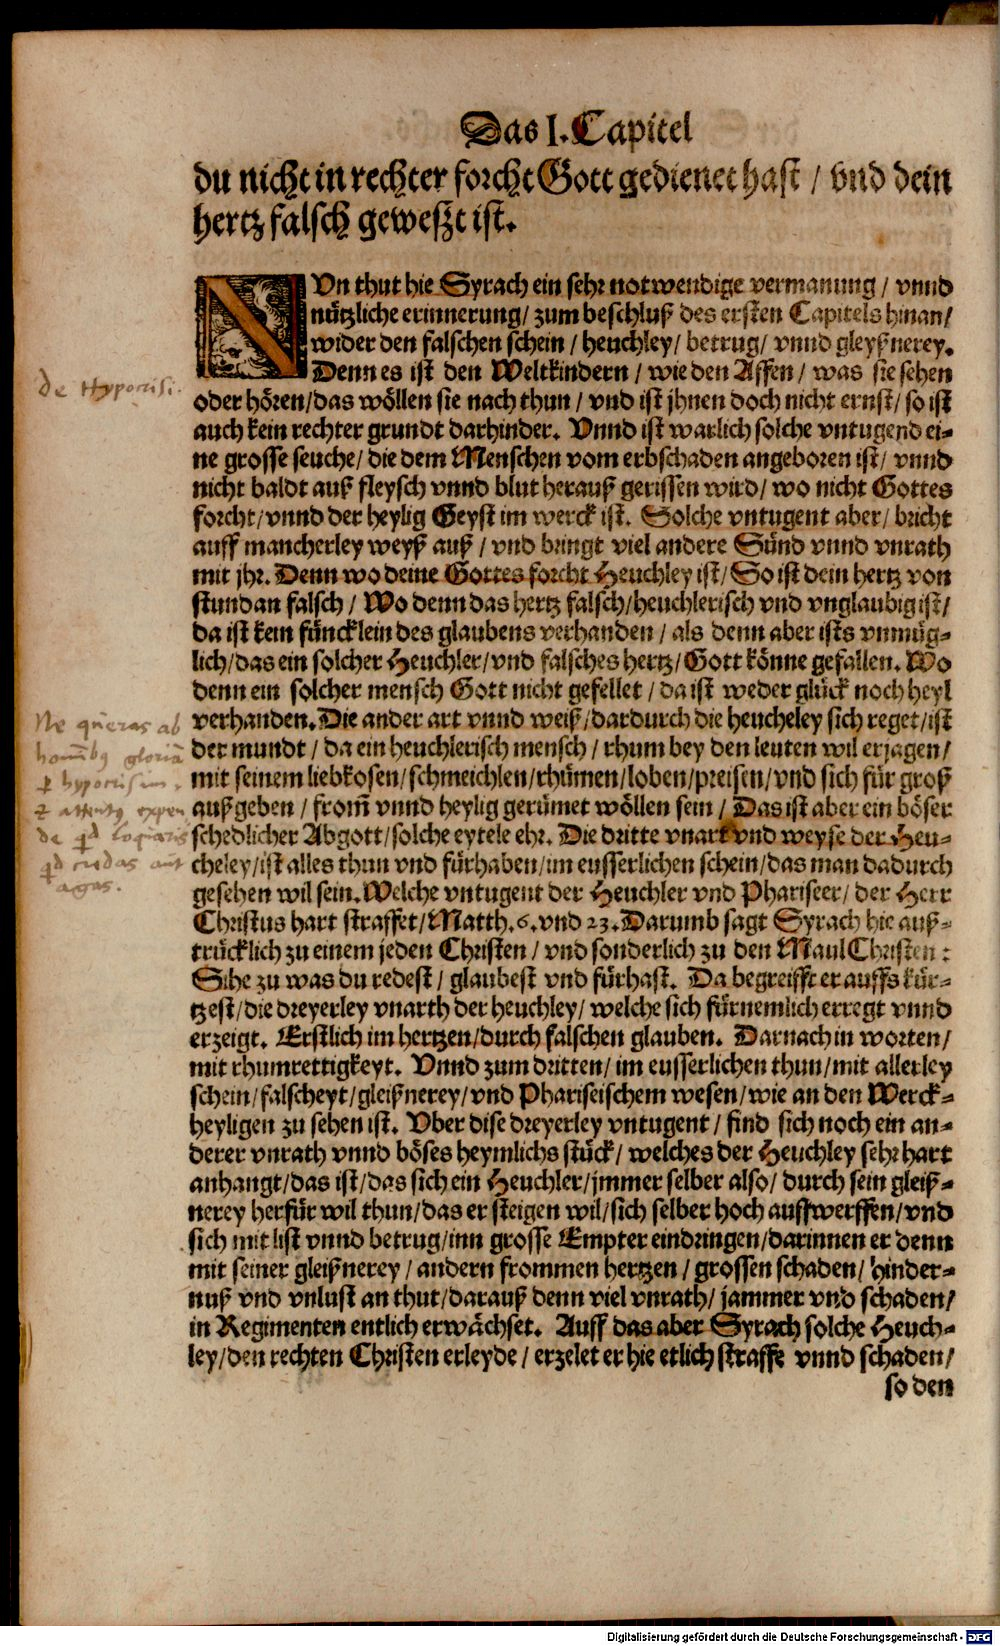 Das I. Capitel
du nicht in rechter forcht Gott gedienet hast / vnd dein
hertz falsch geweßt ist.
NVn thut hie Syrach ein sehr notwendige vermanung / vnnd
nützliche erinnerung / zum beschluß des ersten Capitels hinan /
wider den falschen schein / heuchley / betrug / vnnd gleyßnerey.
Denn es ist den Weltkindern / wie den Affen / was sie sehen
oder hören / das wöllen sie nach thun / vnd ist jhnen doch nicht ernst / so ist
auch kein rechter grundt darhinder. Vnnd ist warlich solche vntugend ei-
ne grosse seuche / die dem Menschen vom erbschaden angeboren ist / vnnd
nicht baldt auß fleysch vnnd blut herauß gerissen wird / wo nicht Gottes
forcht / vnnd der heylig Geyst im werck ist. Solche vntugent aber / bricht
auff mancherley weyß auß / vnd bringt viel andere Sünd vnnd vnrath
mit jhr. Denn wo deine Gottes forcht Heuchley ist / So ist dein hertz von
stund an falsch / Wo denn das hertz falsch / heuchlerisch vnd vnglaubig ist /
da ist kein füncklein des glaubens verhanden / als denn aber ists vnmüg-
lich / das ein solcher Heuchler / vnd falsches hertz / Gott könne gefallen. Wo
denn ein solcher mensch Gott nicht gefellet / da ist weder glück noch heyl
verhanden. Die ander art vnnd weiß / dardurch die heucheley sich reget / ist
der mundt / da ein heuchlerisch mensch / rhum bey den leuten wil erjagen /
mit seinem liebkosen / schmeichlen / rhümen / loben / preisen / vnd sich für groß
außgeben / from̃ vnnd heylig gerümet wöllen sein / Das ist aber ein böser
schedlicher Abgott / solche eytele ehr. Die dritte vnart vnd weyse der Heu-
cheley / ist alles thun vnd fürhaben / im eusserlichen schein / das man dadurch
gesehen wil sein. Welche vntugent der Heuchler vnd Phariseer / der Herr
Christus hart straffet / Matth. 6. vnd 23. Darumb sagt Syrach hie auß-
trücklich zu einem jeden Christen / vnd sonderlich zu den MaulChristen :
Sihe zu was du redest / glaubest vnd fürhast. Da begreifft er auffs kür-
tzest / die dreyerley vnarth der heuchley / welche sich fürnemlich erregt vnnd
erzeigt. Erstlich im hertzen / durch falschen glauben. Darnach in worten /
mit rhumrettigkeyt. Vnnd zum dritten / im eusserlichen thun / mit allerley
schein / falscheyt / gleißnerey / vnd Phariseischem wesen / wie an den Werck-
heyligen zu sehen ist. Vber dise dreyerley vntugent / find sich noch ein an-
derer vnrath vnnd böses heymlichs stück / welches der Heuchley sehr hart
anhangt / das ist / das sich ein Heuchler / jmmer selber also / durch sein gleiß-
nerey herfür wil thun / das er steigen wil / sich selber hoch auffwerffen / vnd
sich mit list vnnd betrug / inn grosse Empter eindringen / darinnen er denn
mit seiner gleißnerey / andern frommen hertzen / grossen schaden / hinder-
nuß vnd vnlust an thut / darauß denn viel vnrath / jammer vnd schaden /
in Regimenten entlich erwächset. Auff das aber Syrach solche Heuch-
ley / den rechten Christen erleyde / erzelet er hie etlich straffe vnnd schaden /
so den
de Hypocrisi.
Ne quæras ab
hominibꝰ gloriã
ꝑ hypocrisim.
& attentꝰ expen
de qd loquaris
qd credas aut
agas.
Digitalisierung gefördert durch die Deutsche Forschungsgemeinschaft - DFG